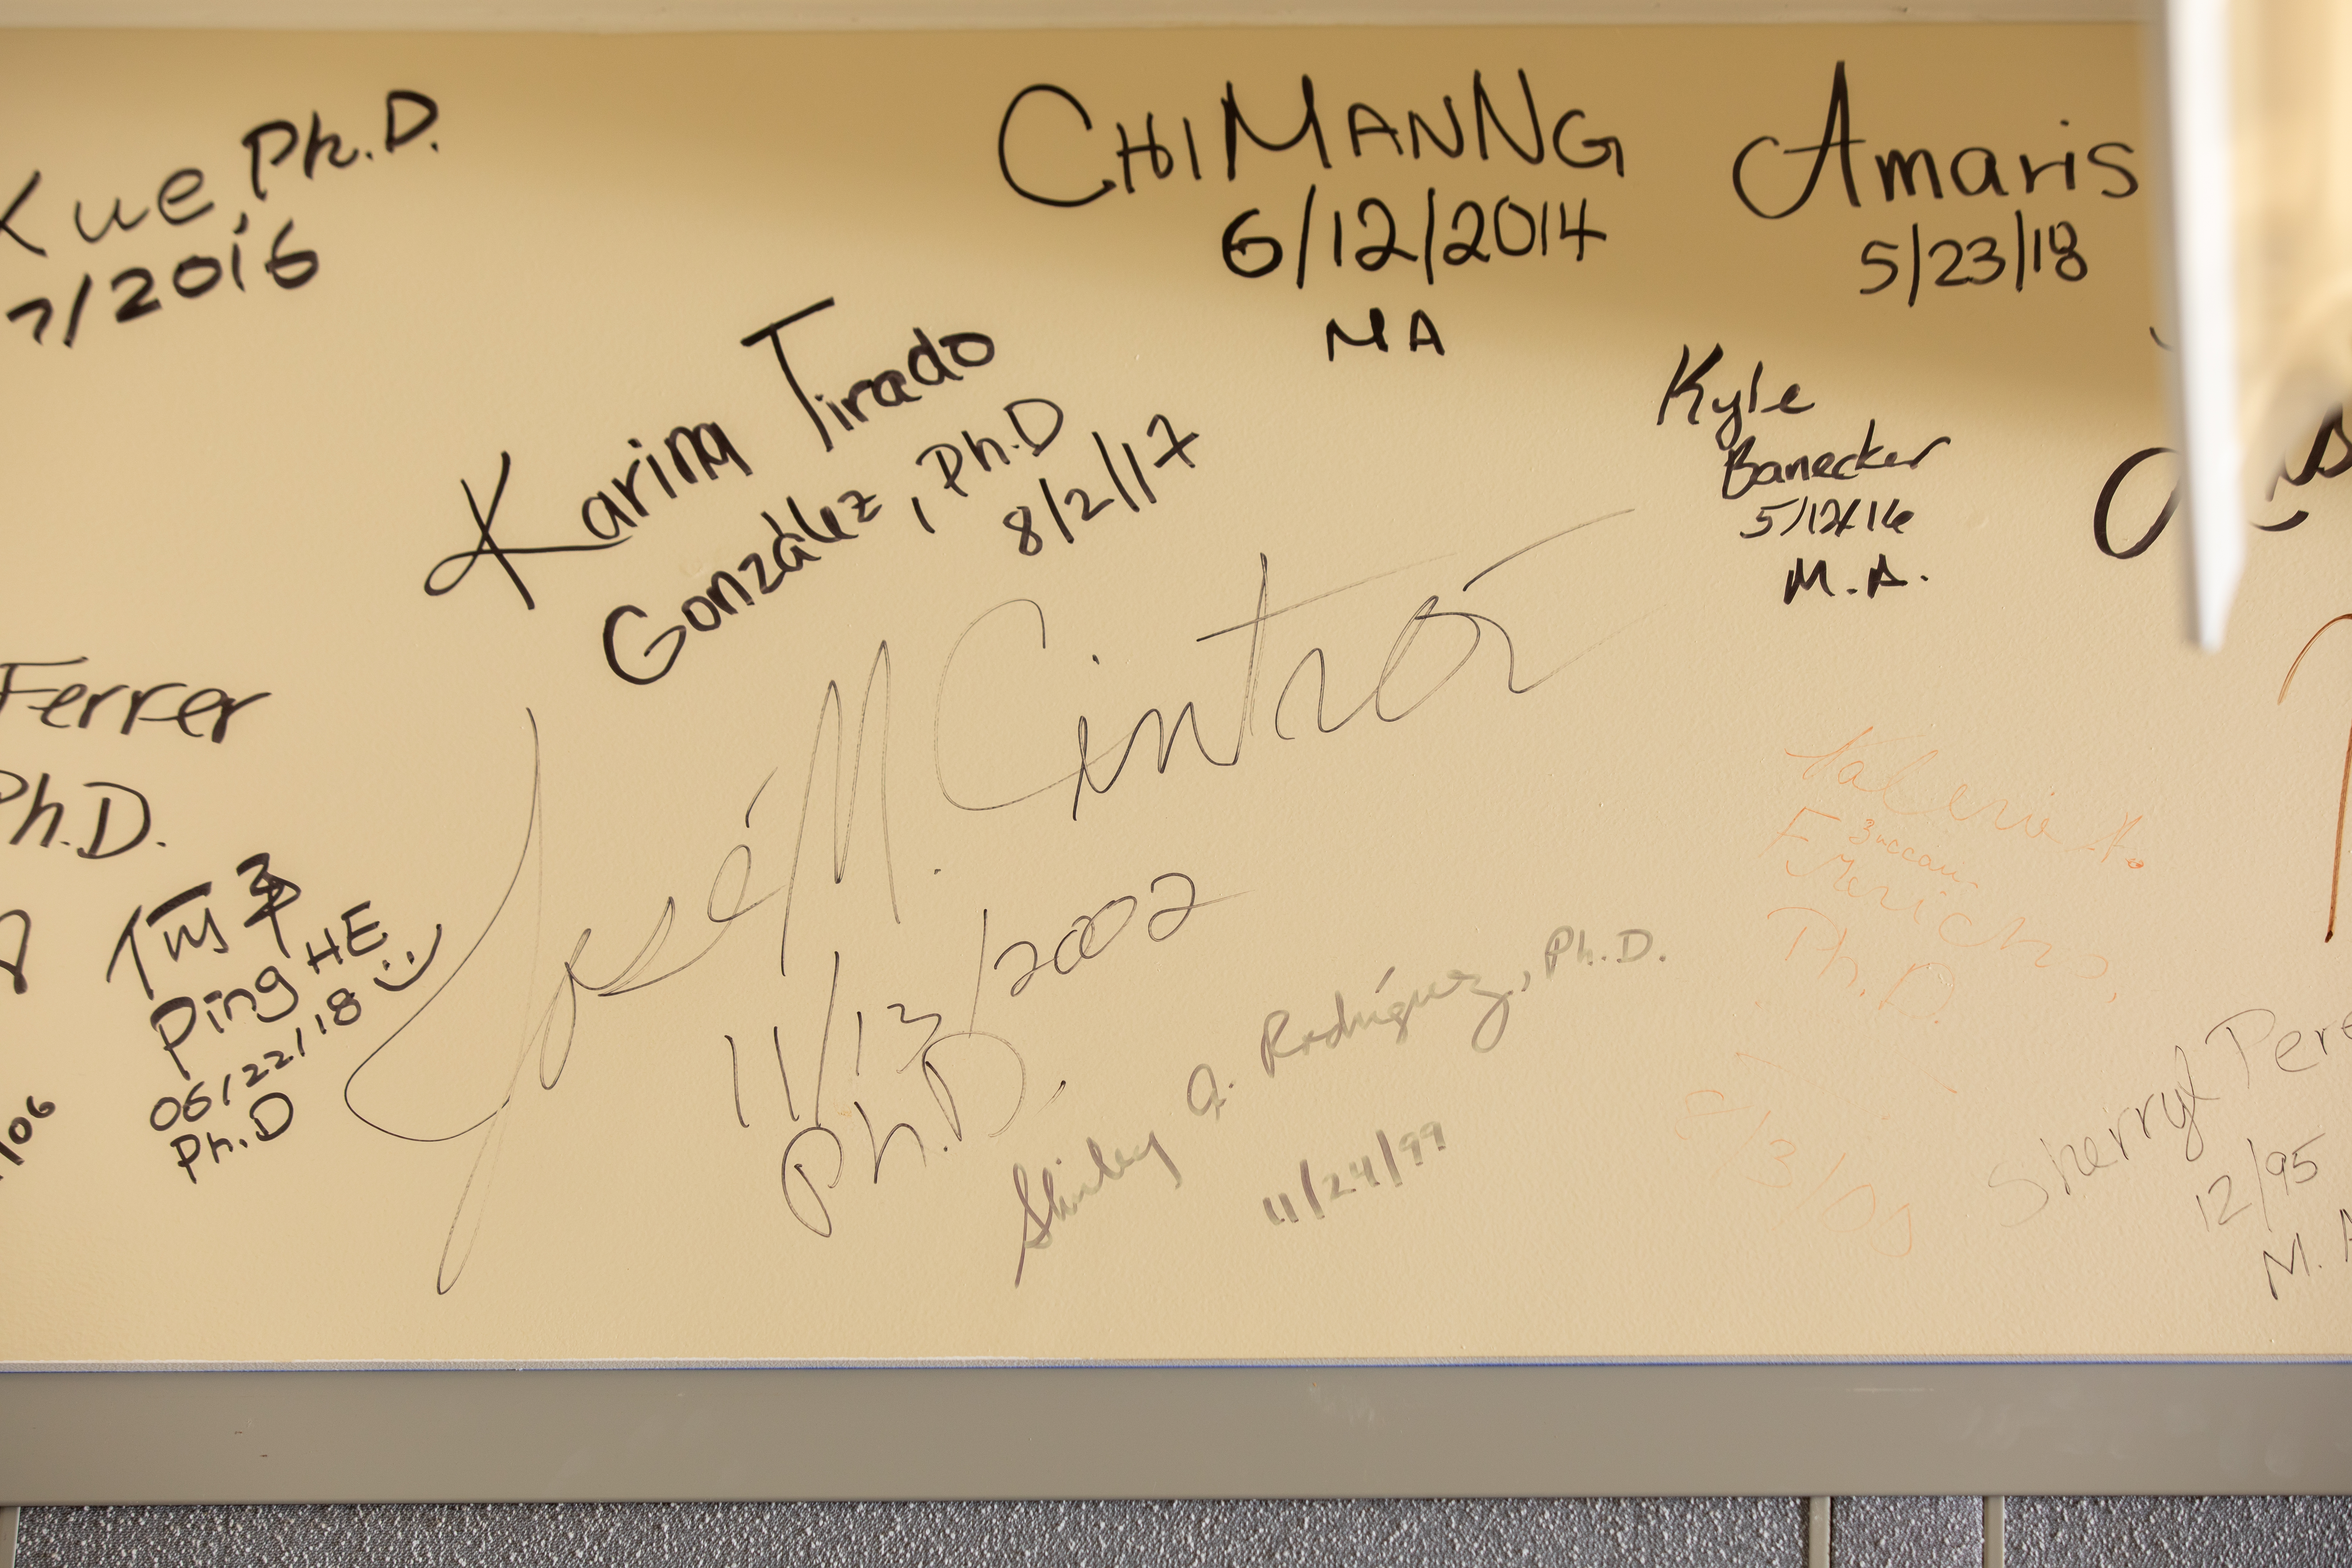 Xue, Ph.D.
7/2016
CHI MAN NG
6/12/2014
MA
Amaris
5/23/18
Karina Tirado
González, Ph.D
8/2/17
Kyle
Banecker
5/12/16
M.A.
Ferrer
Ph.D.
何平
Ping HE
06/22/18
Ph.D
/06
José M. Cintrón
11/13/2002
Ph.D.
Shirley A. Rodríguez, Ph.D.
11/24/99
Valerie A.
Ph.D.
Sherryl Pere
12/95
M. A